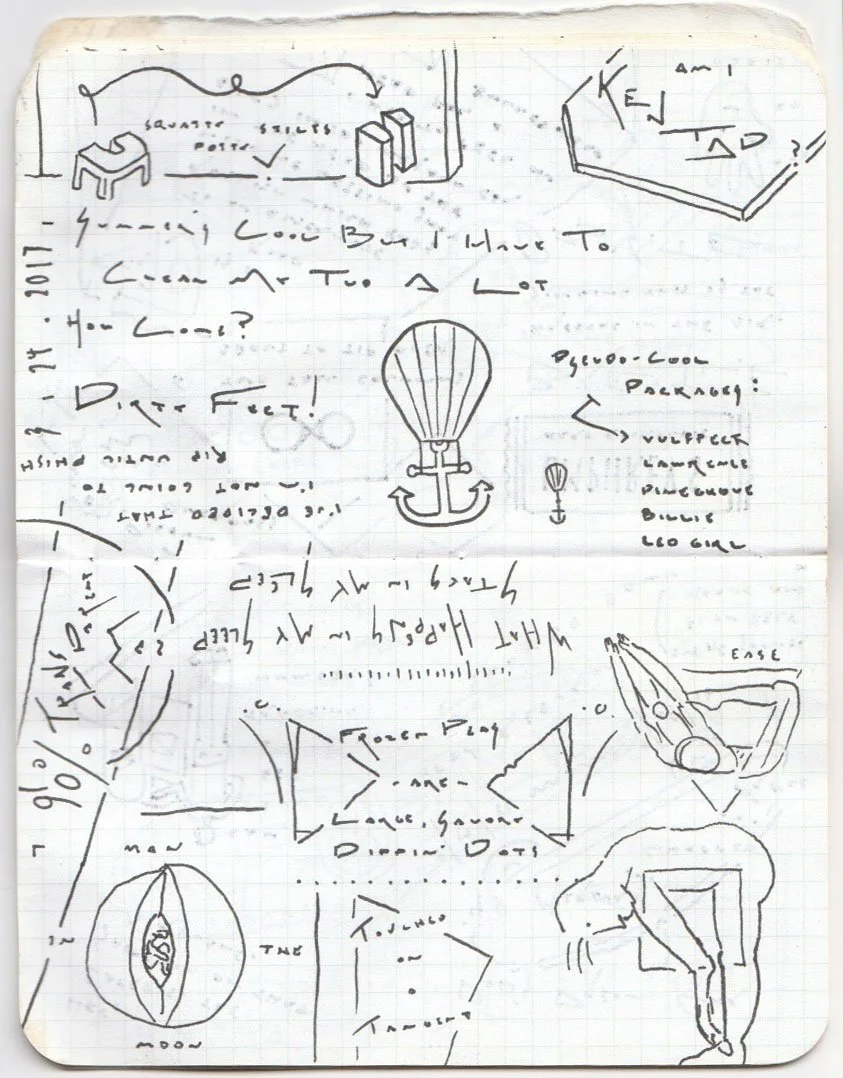 SQUATTY STILTS
POTTY
AM I
KEN
TAD
?
SUMMER'S COOL BUT I HAVE TO
CLEAN MY TUB A LOT
HOW COME?
DIRTY FEET!
24.2017
PSEUDO-COOL
PACKAGES:
VULFPECK
LAWRENCE
PINEGROVE
BILLIE
GIRL
I'VE DECIDED THAT
I'M NOT GOING TO
RIP UNTIL PHISH
WHAT HAPPENS IN MY SLEEP
STAYS IN MY SLEEP
90% TRANSPARENT
EASE
FROZEN PEAS
-ARE-
LARGE, SAVORY
DIPPIN' DOTS
MAN
IN
THE
MOON
TOUCHED
ON
A
TANGENT